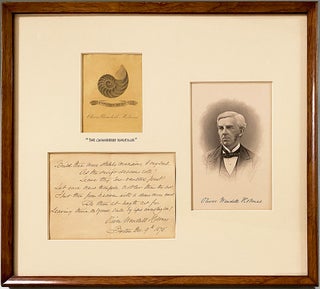 Oliver Wendell Holmes
"THE CHAMBERED NAUTILUS"
Build thee more stately mansions, O my soul,
As the swift seasons roll!
Leave thy low-vaulted past!
Let each new temple, nobler than the last,
Shut thee from heaven with a dome more vast,
Till thou at length art free,
Leaving thine outgrown shell by life's unresting sea!
Oliver Wendell Holmes
Boston
Oliver Wendell Holmes